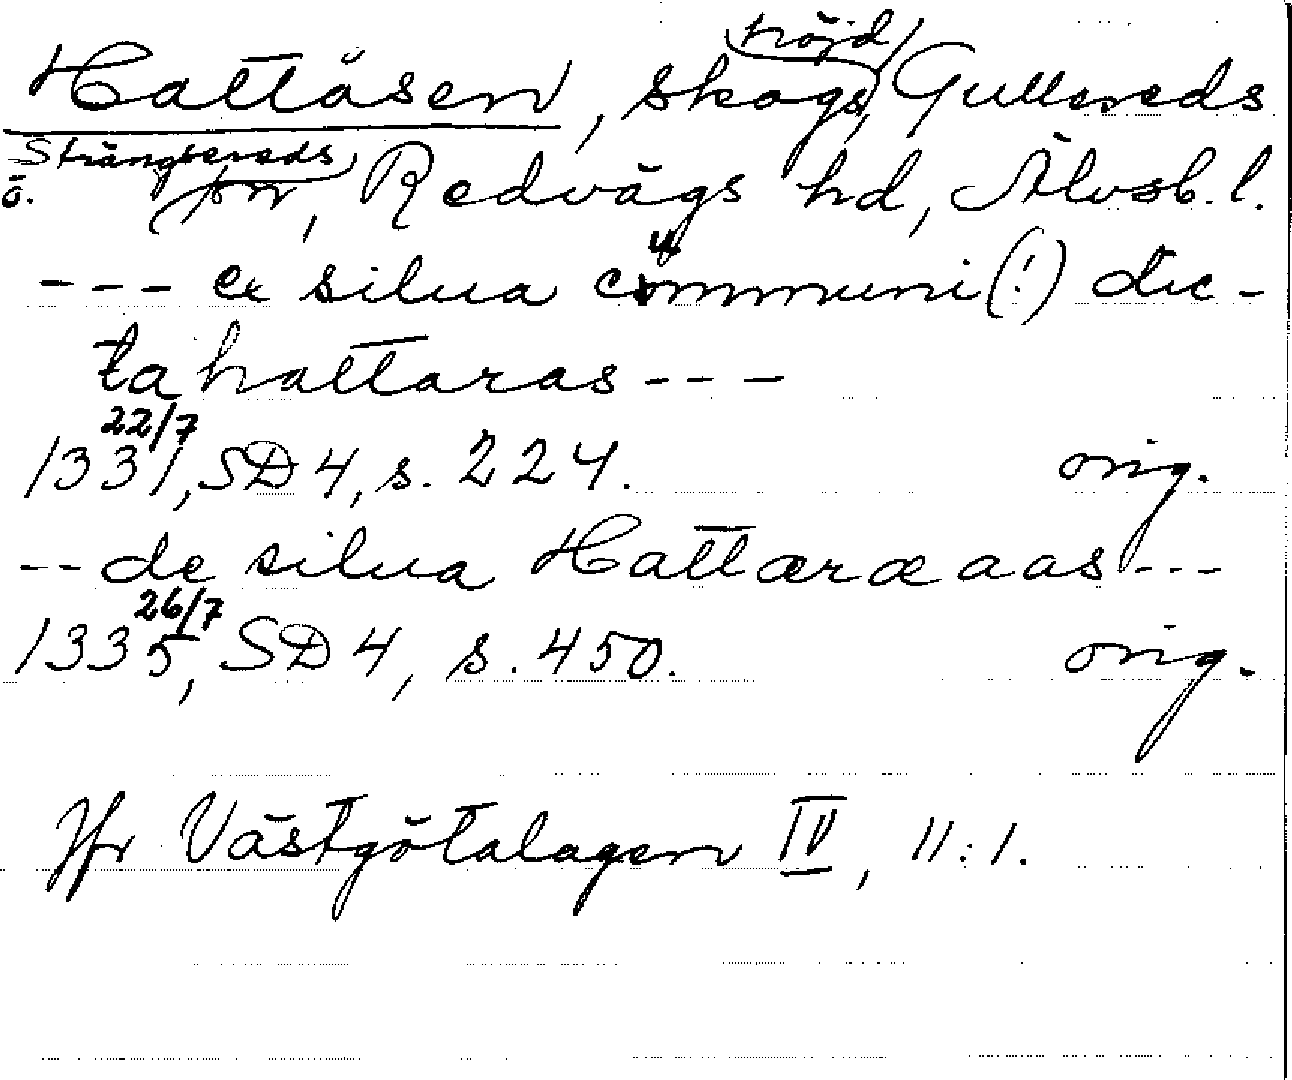 höjd
Hattåsen, skogs, Gullereds
Strängsereds
o. sn, Redvägs hd, Älvsb. l.
--- ex silua cummuni(!) dic-
ta hattaras ---
22/7
1331, SD 4, s. 224. orig.
-- de silua Hattæræaas ---
26/7
1335, SD 4, s. 450. orig.
Jfr Västgötalagen IV, 11:1.